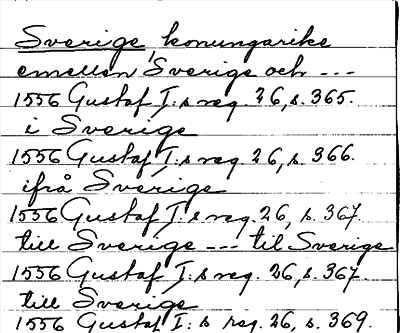 Sverige, konungarike
emellen Sverige och ---
1556 Gustaf I: s reg. 26, s. 365.
i Sverige
1556 Gustaf I: s reg. 26, s. 366.
ifrå Sverige
1556 Gustaf I: s reg. 26, s. 367.
till Sverige --- til Sverige
1556 Gustaf I: s reg. 26, s. 367.
till Sverige
1556 Gustaf I: s reg. 26, s. 369.